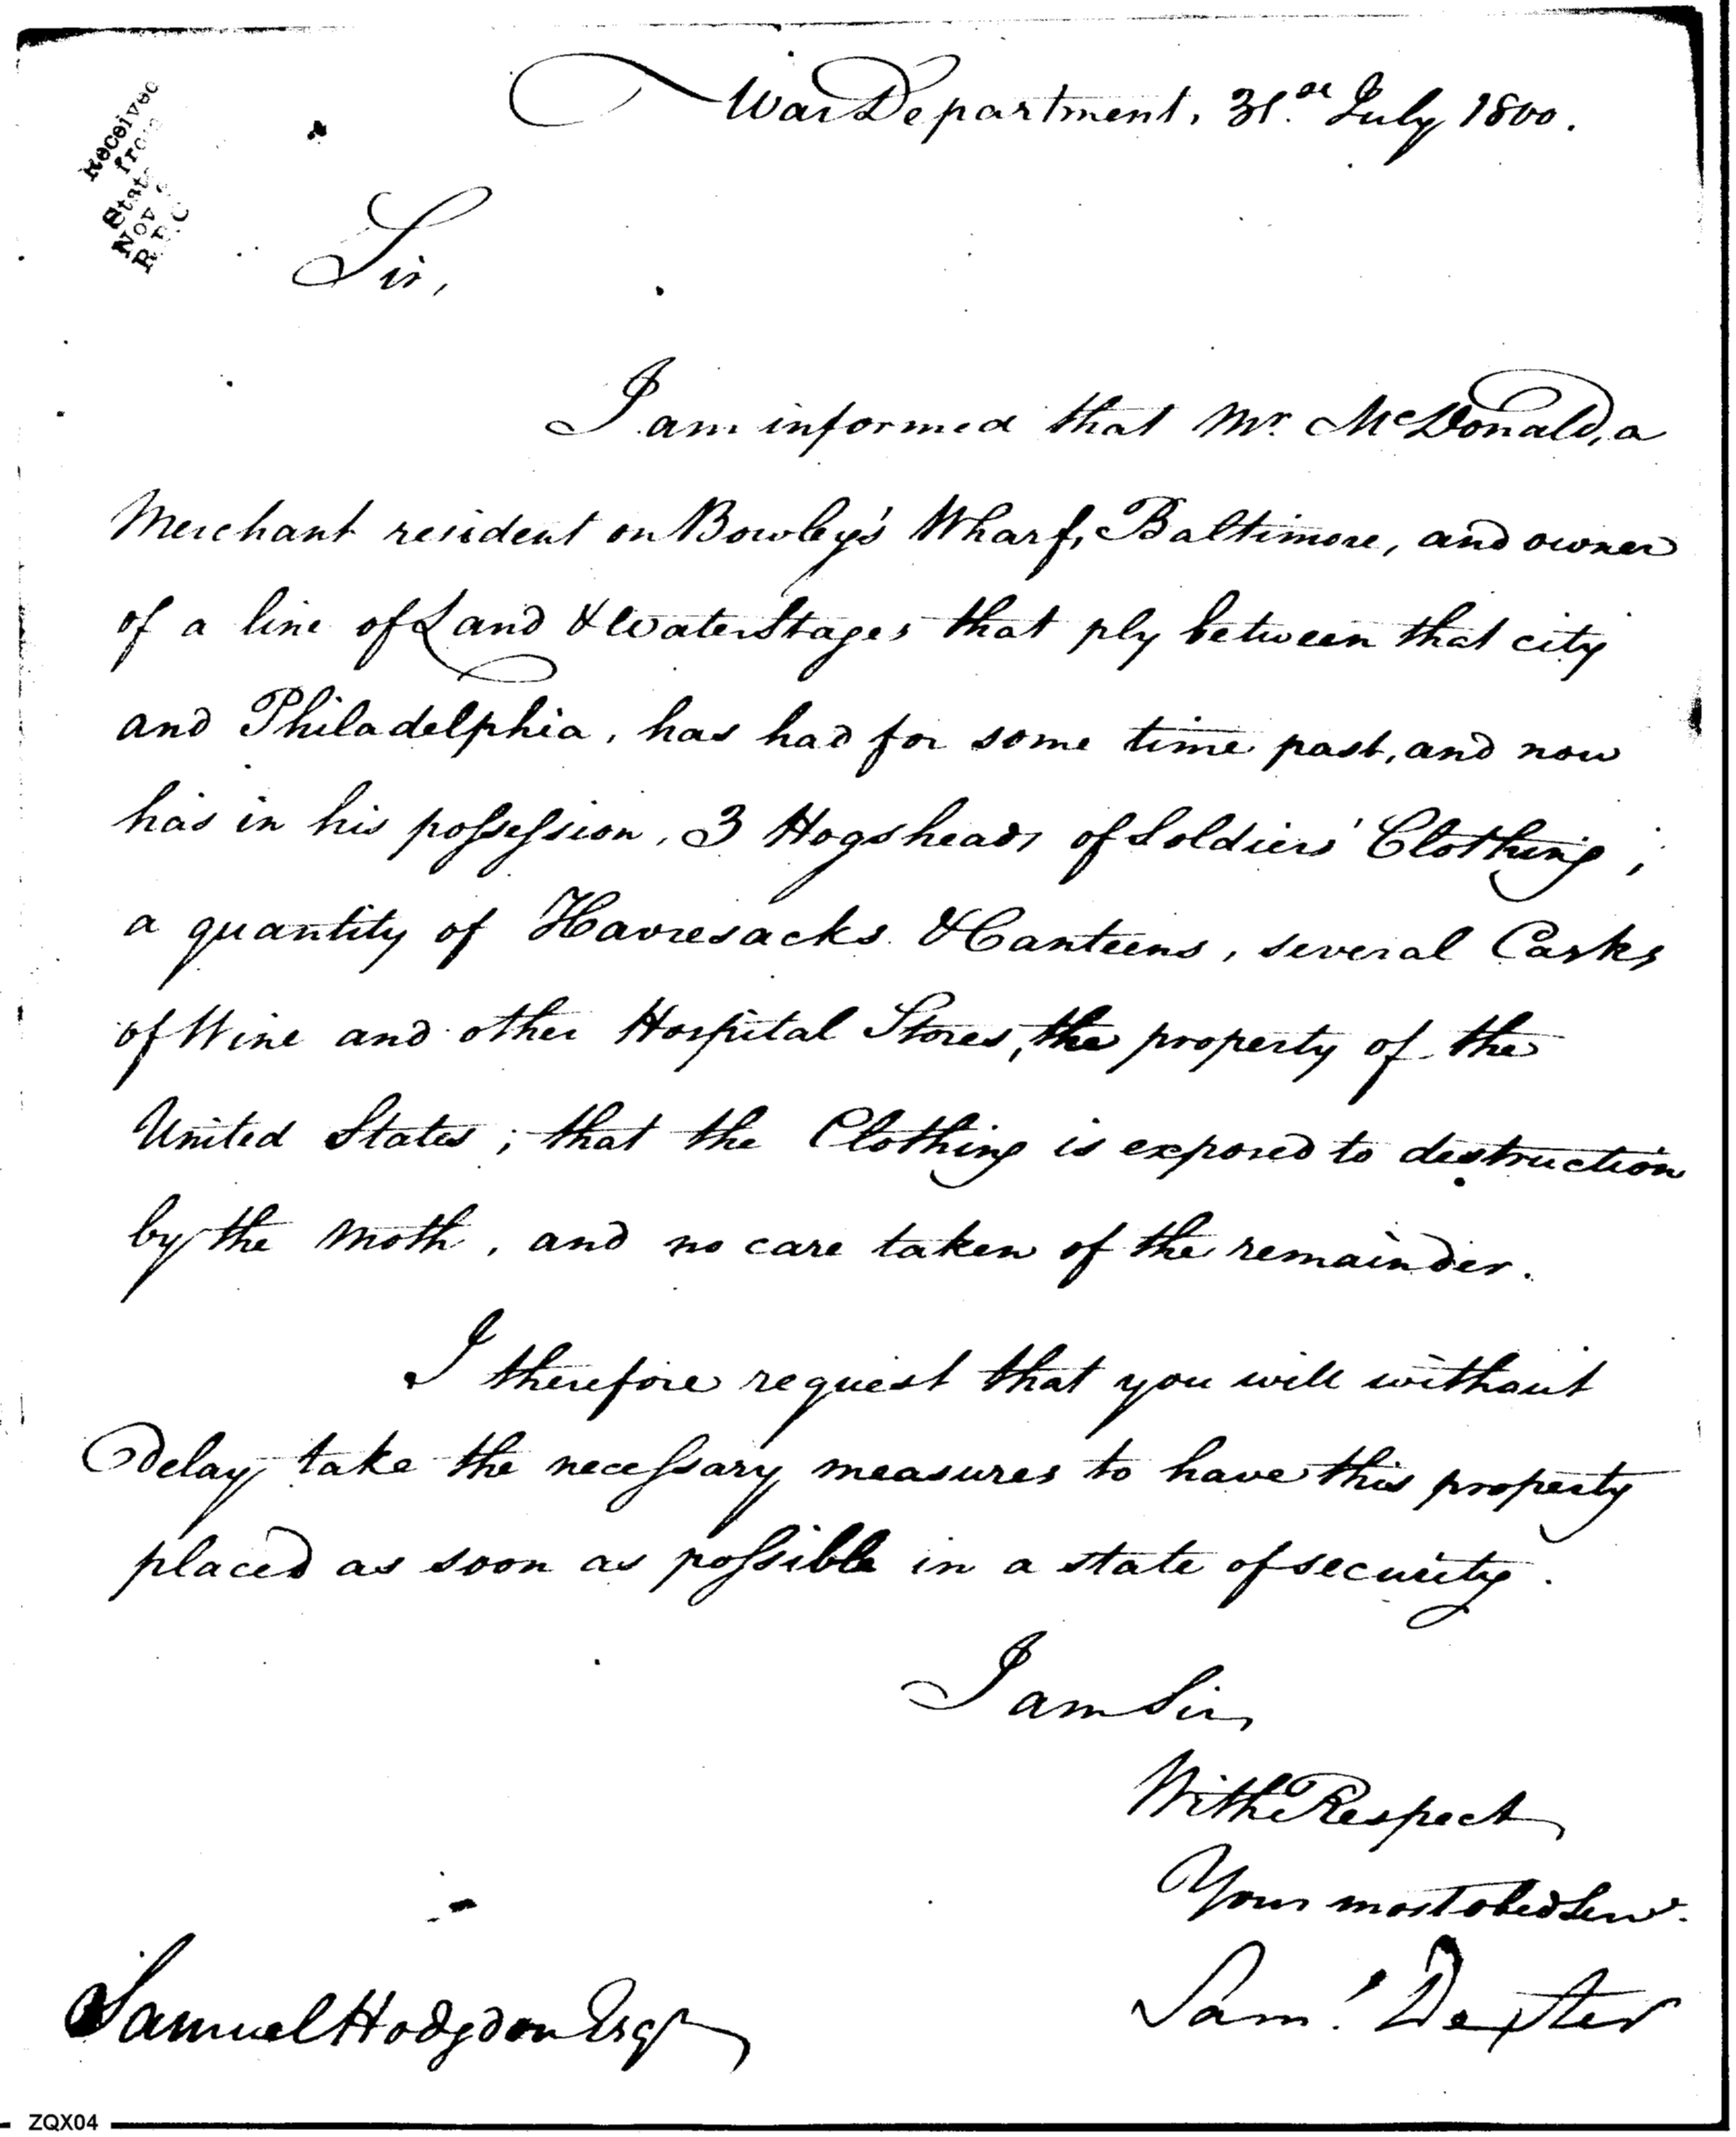 War Department, 31.st July 1800.
Received
from
State
Nov
R. P. C
Sir,
I am informed that Mr. McDonald, a
Merchant resident on Bowley's Wharf, Baltimore, and owner
of a line of Land & Water Stages that ply between that city
and Philadelphia, has had for some time past, and now
has in his possession, 3 Hogsheads of Soldiers' Clothing;
a quantity of Havresacks & Canteens, several Casks
of Wine and other Hospital Stores, the property of the
United States; that the Clothing is exposed to destruction
by the Moth, and no care taken of the remainder.
I therefore request that you will without
Delay take the necessary measures to have this property
placed as soon as possible in a state of security.
I am Sir,
With Respect,
Your most obed Serv.
Saml. Dexter
Samuel Hodgdon Esqr
ZQX04